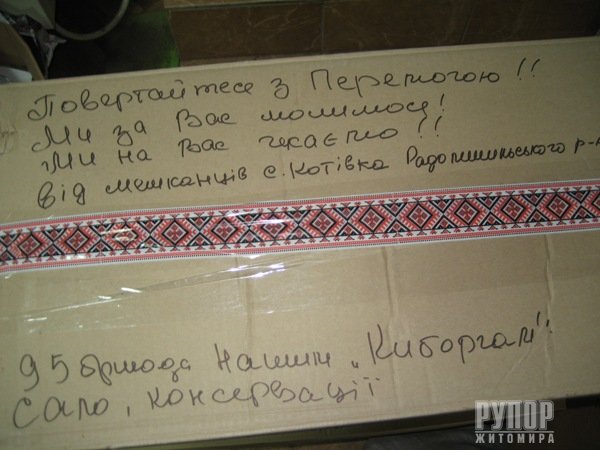 Повертайтесь з Перемогою!!
Ми за Вас молимося!
Ми на Вас чекаємо!!
Від мешканців с. Котівка Радомишильського р-н
95 бригада нашим „Киборгам"!
Сало, консервації
РУПОР
ЖИТОМИРА